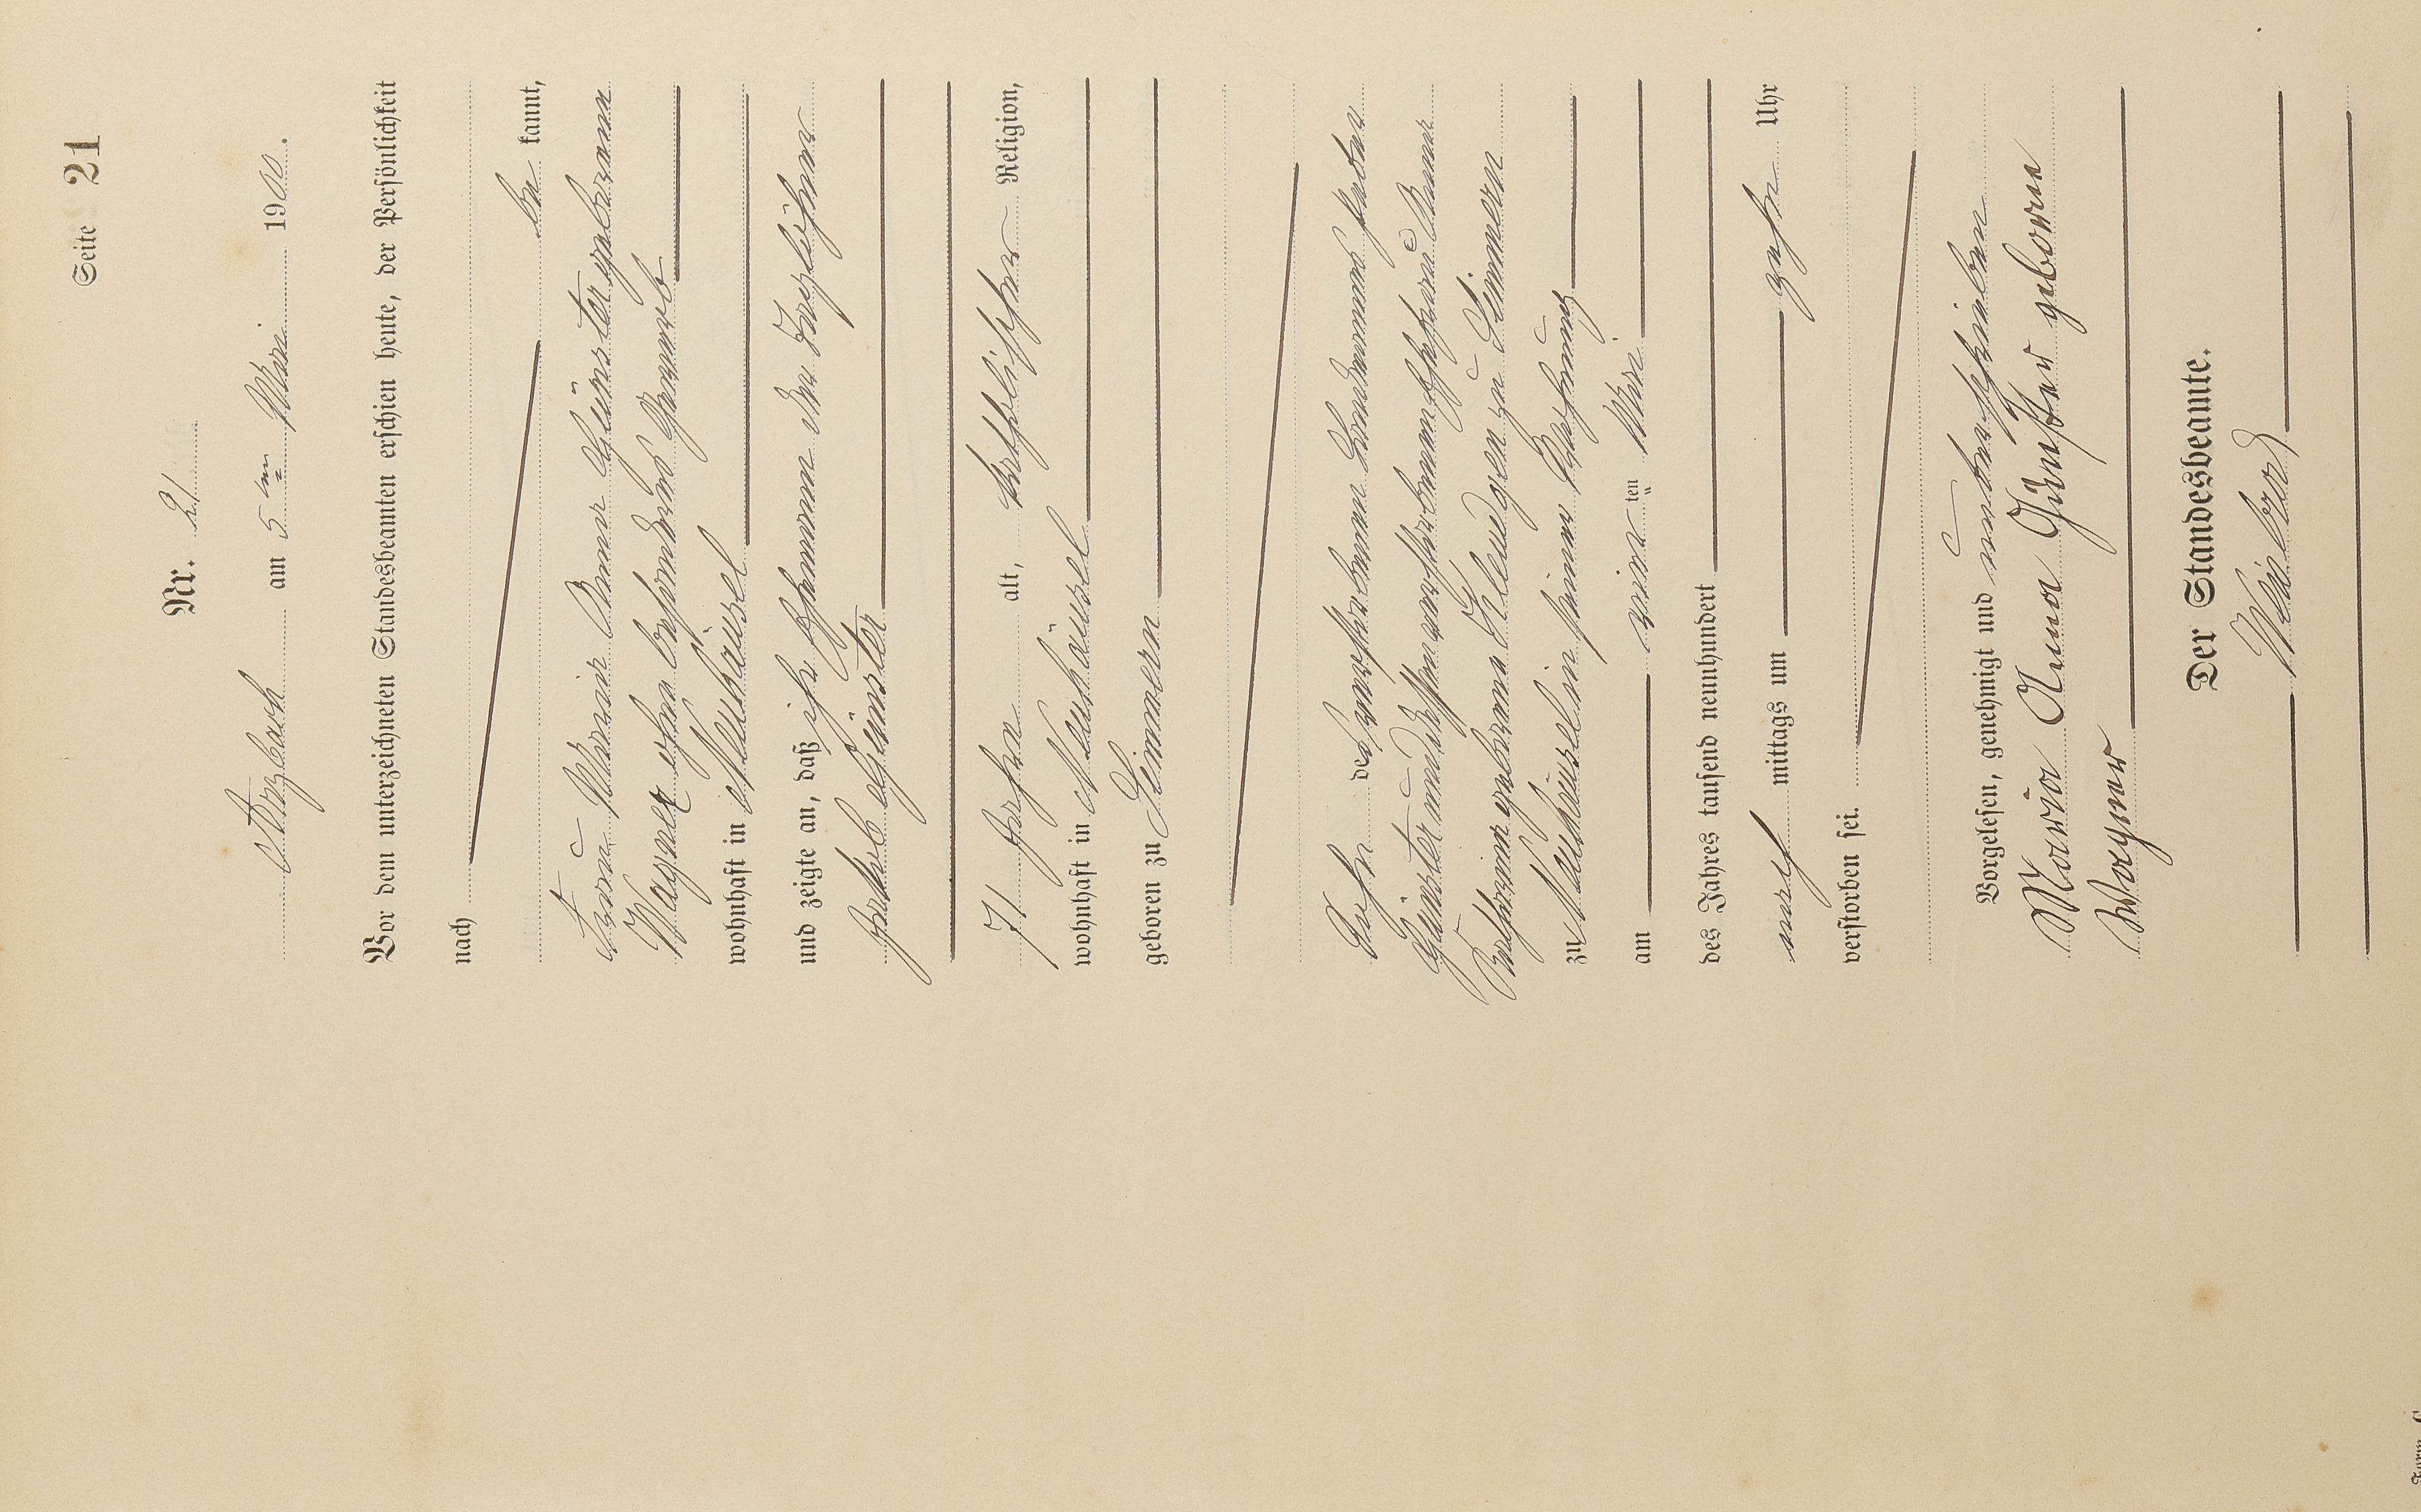 Seite 21
Nr. 21
Arzbach am 5ten Mai 1900.
Vor dem unterzeichneten Standesbeamten erschien heute, der Persönlichkeit
nach
be kannt,
Frau Maria Anna Günster geborene
Wagner ohne besonderes Gewerb
wohnhaft in Neuhäusel
und zeigte an, daß ihr Ehemann der
Jakob Günster
71 Jahre alt, katholischer Religion,
wohnhaft in Neuhäusel
geboren zu Simmern
Sohn des verstorbenen Landmanns
Günster und dessen verstorbenen Ehefrau
geborene zu Simmern
zu Neuhäusel in seiner Wohnung
am vier ten Mai
des Jahres tausend neunhundert
nach mittags um zehn Uhr
verstorben sei.
Vorgelesen, genehmigt und unterschrieben
Maria Anna Günster geborene
Wagner
Der Standesbeamte.
Form. C.